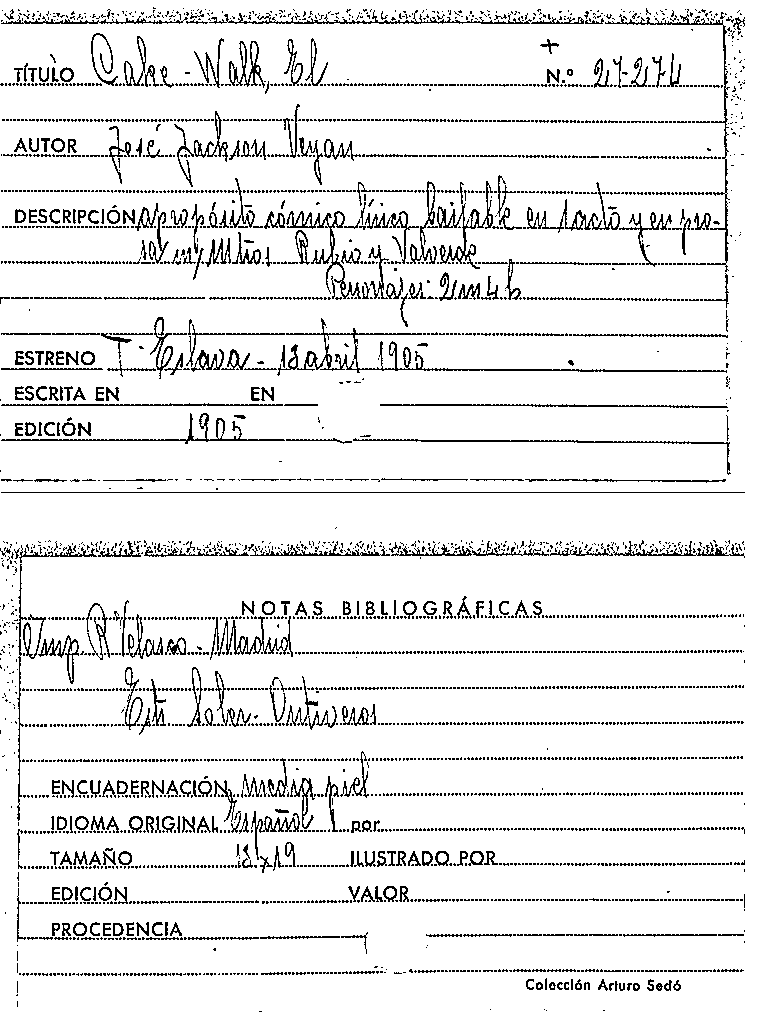 +
TÍTULO Cake-Walk, El N.º 27-274
AUTOR José Jackson Veyan
DESCRIPCIÓN apropósito cómico lírico bailable en 1 acto y en pro-
sa m/ Mtros Rubio y Valverde
Personajes: 2 m 4 h
ESTRENO T. Eslava - 13 abril 1905
ESCRITA EN EN
EDICIÓN 1905
NOTAS BIBLIOGRÁFICAS
Imp R Velasco - Madrid
Soler - Ontiveros
ENCUADERNACIÓN media piel
IDIOMA ORIGINAL Español por
TAMAÑO 13x19 ILUSTRADO POR
EDICIÓN VALOR
PROCEDENCIA
Colección Arturo Sedó